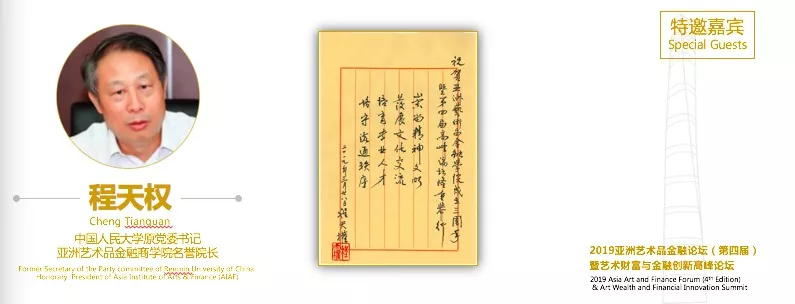 程天权
Cheng Tianquan
中国人民大学原党委书记
亚洲艺术品金融商学院名誉院长
Former Secretary of the Party committee of Renmin University of China
Honorary President of Asia Institute of Arts & Finance (AIAF)
祝贺亚洲艺术品金融学院成立三周年
暨第四届高峰论坛隆重举行
崇尚精神文明
发展文化交流
培育专业人才
恪守流通秩序
二〇一九年三月廿八日 程天權
特邀嘉宾
Special Guests
2019亚洲艺术品金融论坛（第四届）
暨艺术财富与金融创新高峰论坛
2019 Asia Art and Finance Forum (4ᵗʰ Edition)
& Art Wealth and Financial Innovation Summit